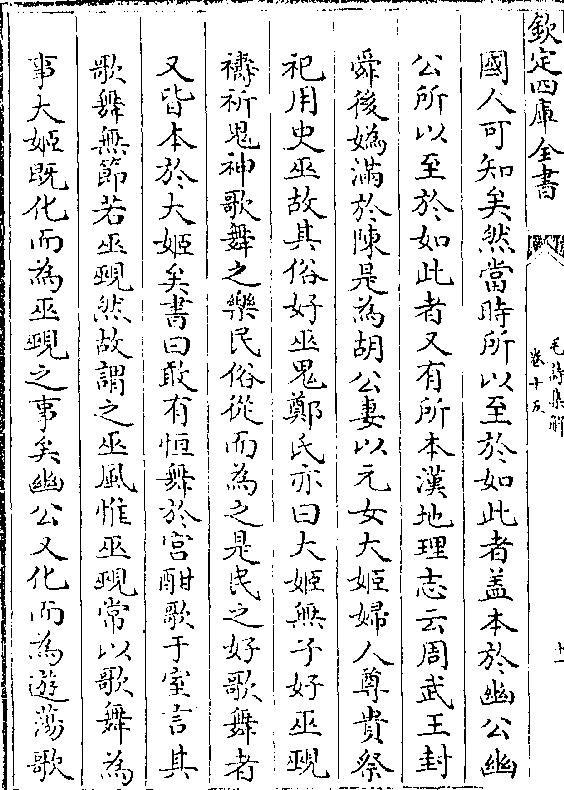 欽定四庫全書
毛詩集解
卷十五
十一
國人可知矣然當時所以至於如此者盖本於幽公幽
公所以至於如此者又有所本漢地理志云周武王封
舜後媯滿於陳是為胡公妻以元女大姬婦人尊貴祭
祀用史巫故其俗好巫鬼鄭氏亦曰大姬無子好巫覡
禱祈鬼神歌舞之樂民俗從而為之是民之好歌舞者
又皆本於大姬矣書曰敢有恒舞於宫酣歌于室言其
歌舞無節若巫覡然故謂之巫風惟巫覡常以歌舞為
事大姬既化而為巫覡之事矣幽公又化而為遊蕩歌